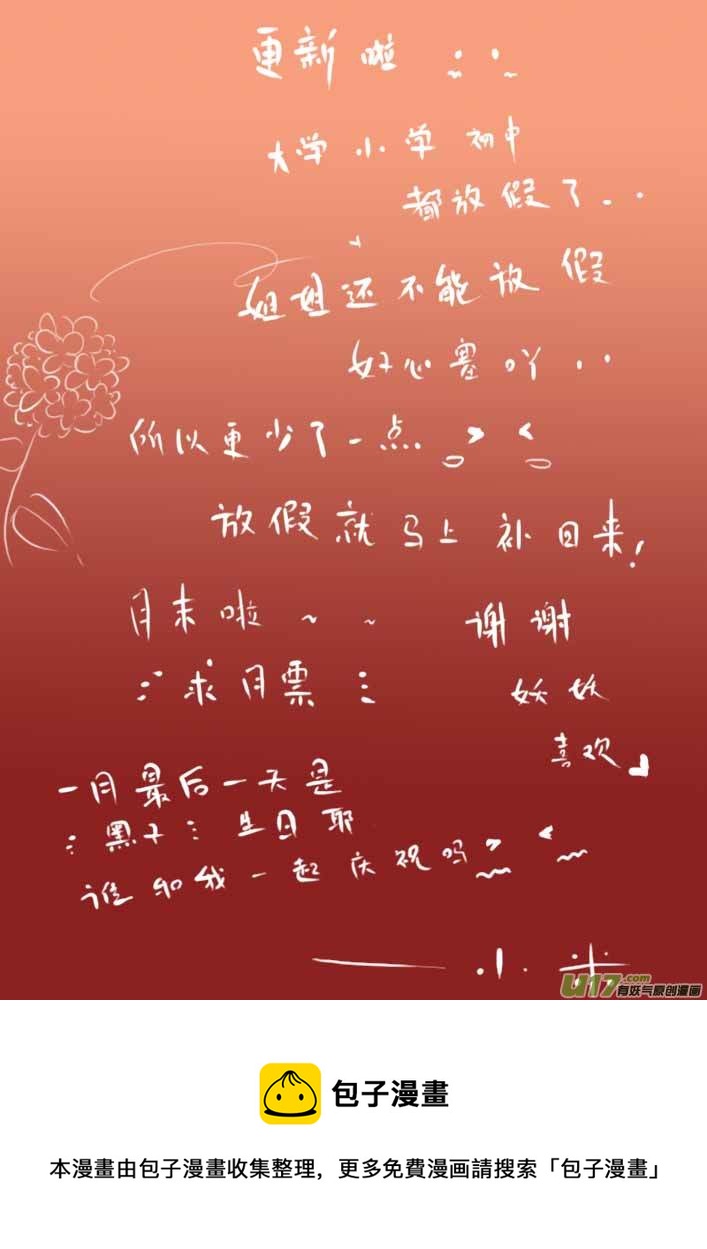 更新啦
大学小学初中
都放假了..
姐姐还不能放假
好心塞吖..
所以更少了一点
放假就马上补回来!
月末啦~~
谢谢
求月票
妖妖
喜欢
一月最后一天是
黑子生日耶
谁和我一起庆祝吗?
——小米
U17.com
有妖气原创漫画
包子漫畫
本漫畫由包子漫畫收集整理,更多免費漫画請搜索「包子漫畫」